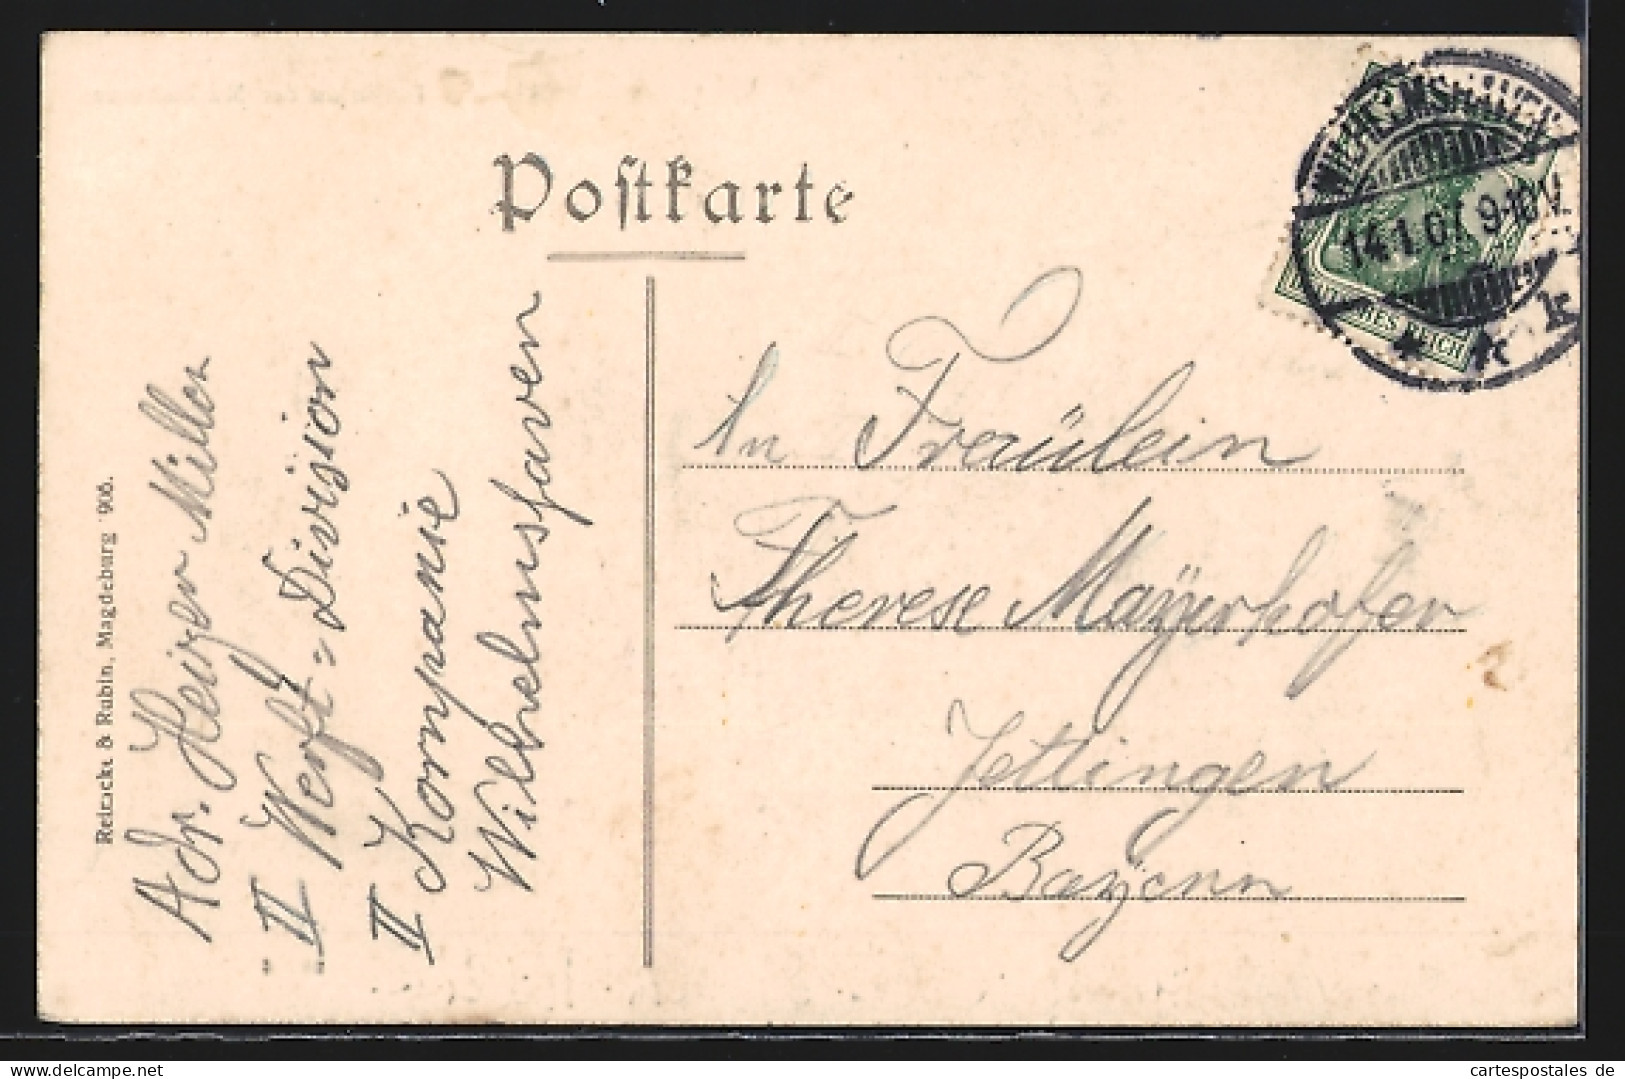 Postkarte
WILHELMSHAVEN
14.1.07. 9-10 V.
* k
DEUTSCHES REICH
An Fräulein
Therese Mayerhofer
Jettingen
Bayern
Adr. Heizer Miller
II Werft-Division
II Kompanie
Wilhelmshaven
Reitzackt & Rubin, Magdeburg 906.
www.cartespostales.de
cartespostales de